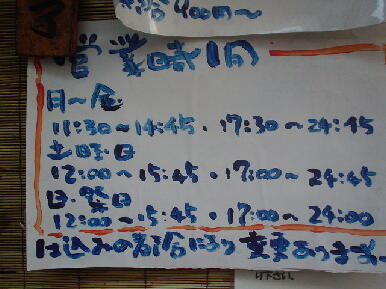 給 900円〜
営業時間
月〜金
11:30〜14:45・17:30〜24:45
土曜・日
12:00〜15:45・17:00〜24:45
日・祭日
12:00〜15:45・17:00〜24:00
仕込みの都合により変更あります。
け下さい。